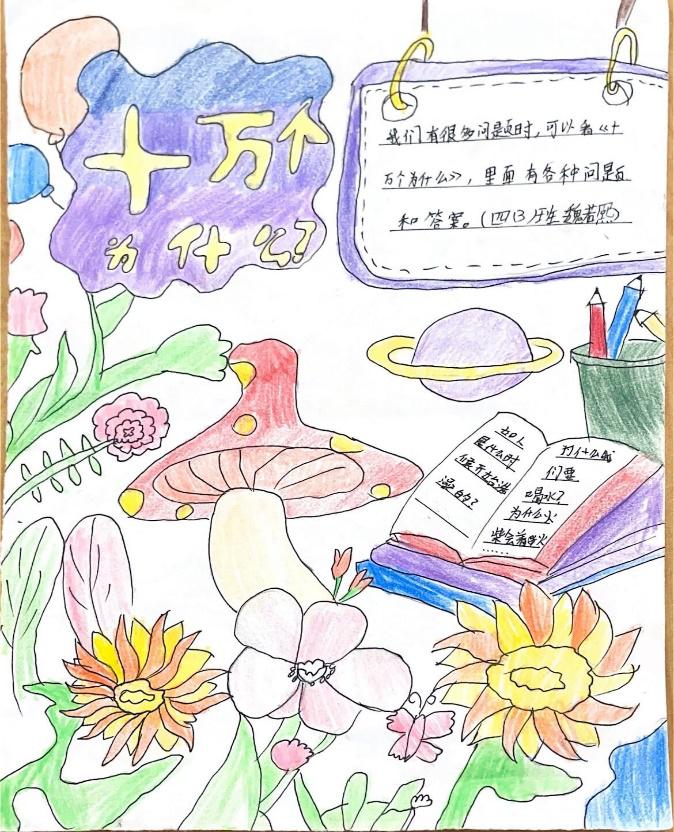 十万个
为什么?
我们有很多问题时,可以看《十
万个为什么》,里面有各种问题
和答案。(四(3)班 魏若熙)
如人
是什么时
候开始洗
澡的?
为什么我
们要
喝水?
为什么火
柴会着火
......